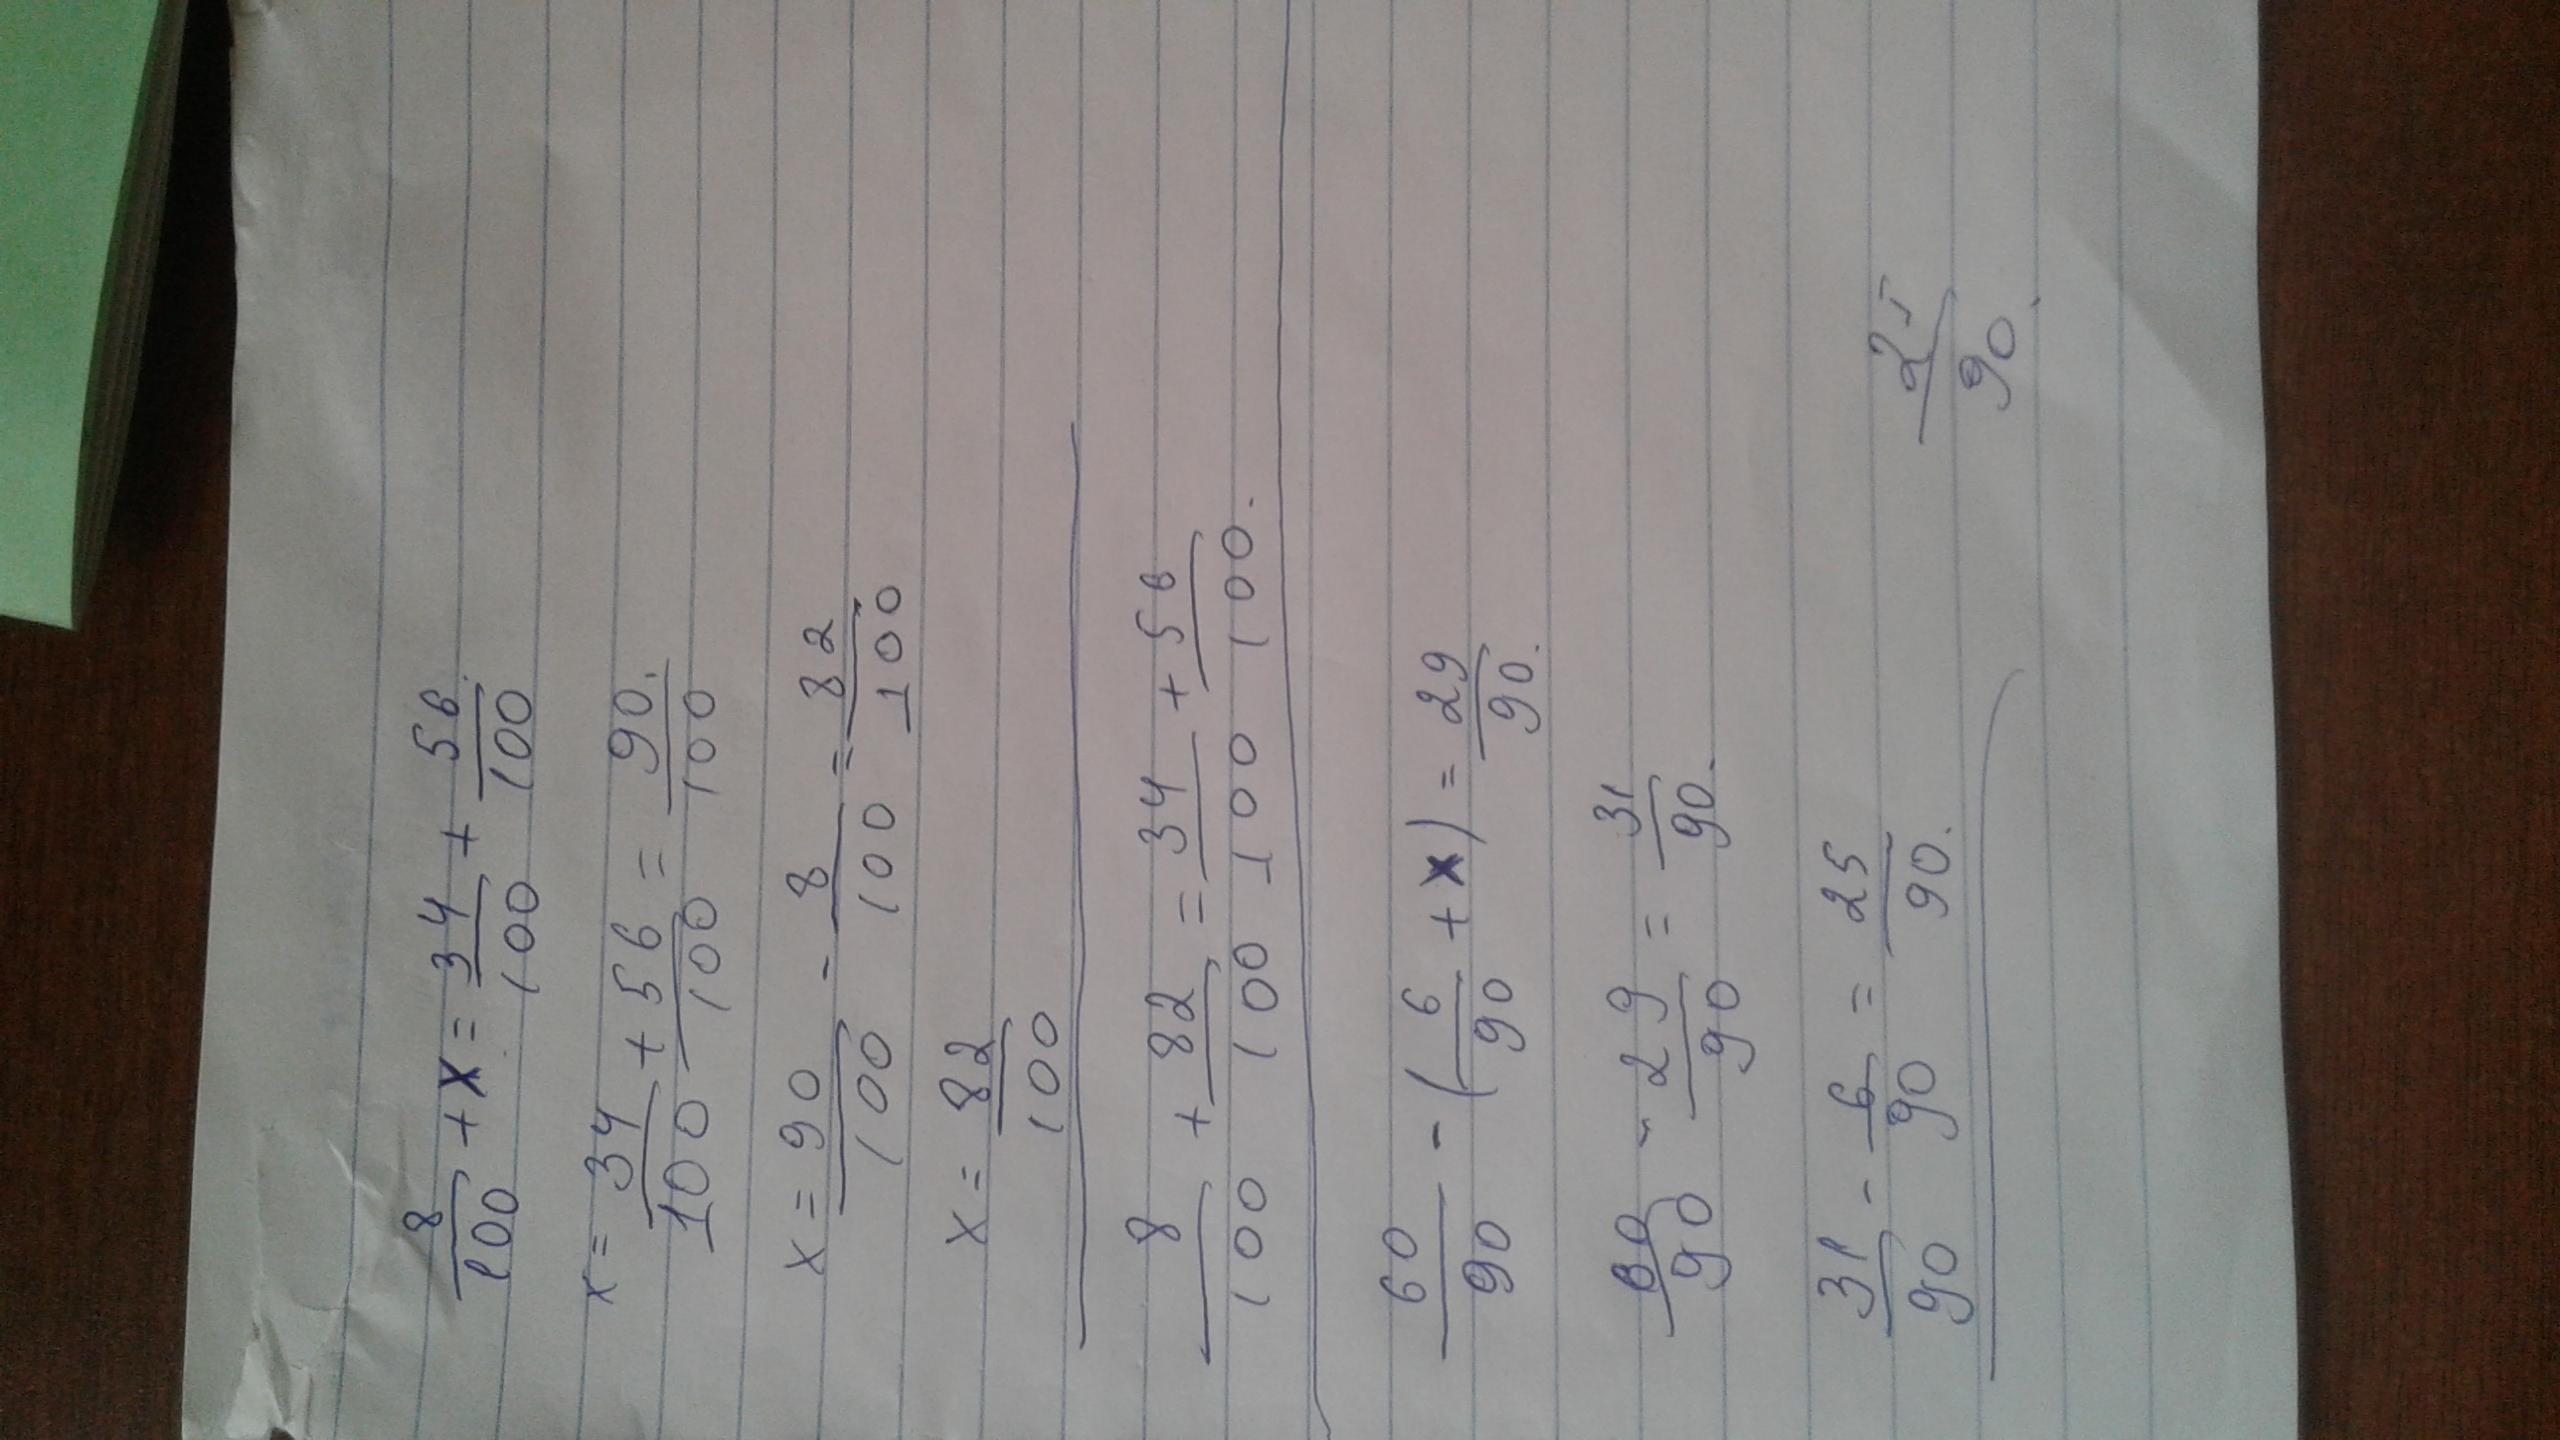 8/100 + x = 34/100 + 56/100
x = 34/100 + 56/100 = 90/100
x = 90/100 - 8/100 = 82/100
x = 82/100
8/100 + 82/100 = 34/100 + 56/100.
60/90 - (6/90 + x) = 29/90.
60/90 - 29/90 = 31/90.
31/90 - 6/90 = 25/90.
25/90.